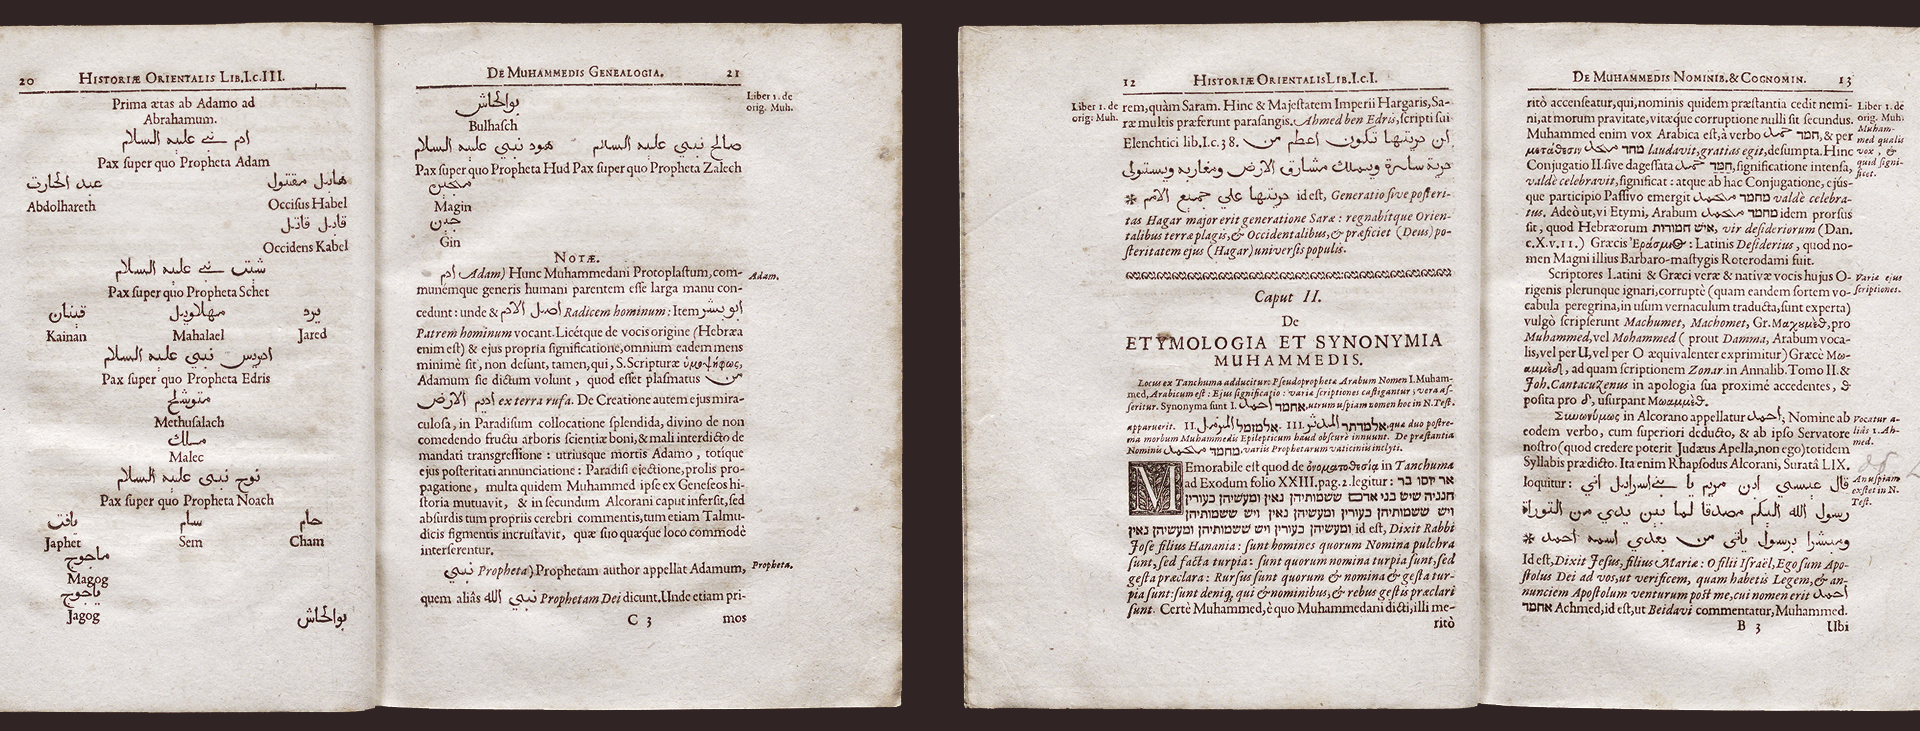 20 HISTORIÆ ORIENTALIS LIB.I.C.III.
Prima ætas ab Adamo ad
Abrahamum.
ادم نبي عليه السلام
Pax super quo Propheta Adam
هابل مقتول عبد الحارت
Abdolhareth Occisus Habel
قابل قاتل
Occidens Kabel
شيت نبي عليه السلام
Pax super quo Propheta Schet
يرد مهلاويل قينان
Kainan Mahalael Jared
ادريس نبي عليه السلام
Pax super quo Propheta Edris
متوشلح
Methusalach
مسلك
Malec
نوح نبي عليه السلام
Pax super quo Propheta Noach
حام سام يافت
Japhet Sem Cham
ماجوج
Magog
ياجوج
Jagog
بوالخاش
DE MUHAMMEDIS GENEALOGIA. 21
Liber 1. de
orig. Muh.
بوالخاش
Bulhasch
صالح نبي عليه السلام هود نبي عليه السلام
Pax super quo Propheta Hud Pax super quo Propheta Zalech
Magin
جين
Gin
NOTÆ.
ادم Adam) Hunc Muhammedani Protoplastum, com-
Adam.
munemque generis humani parentem esse larga manu con-
cedunt: unde & اصل الادم Radicem hominum: Item ابو بشر
Patrem hominum vocant. Licétque de vocis origine (Hebræa
enim est) & ejus propria significatione, omnium eadem mens
minimè sit, non desunt, tamen, qui, S. Scripturæ ὁμοψήφως,
Adamum sic dictum volunt, quod esset plasmatus من
اديم الارض ex terra rufa. De Creatione autem ejus mira-
culosa, in Paradisum collocatione splendida, divino de non
comedendo fructu arboris scientiæ boni, & mali interdicto de
mandati transgressione: utriusque mortis Adamo, totíque
ejus posteritati annunciatione: Paradisi ejectione, prolis pro-
pagatione, multa quidem Muhammed ipse ex Geneseos hi-
storia mutuavit, & in secundum Alcorani caput infersit, sed
absurdis tum propriis cerebri commentis, tum etiam Talmu-
dicis figmentis incrustavit, quæ suo quæque loco commodè
interserentur.
نبي Propheta) Prophetam author appellat Adamum,
Propheta.
quem aliàs نبي الله Prophetam Dei dicunt. Unde etiam pri-
C 3 mos
12 HISTORIÆ ORIENTALIS LIB.I.C.I.
Liber 1. de
orig. Muh.
rem, quàm Saram. Hinc & Majestatem Imperii Hargaris, Sa-
ræ multis præferunt parasangis. Ahmed ben Edris, scripti sui
Elenchtici lib.I.c.38. ان دريتها تكون اعظم من
درية سارة ويملك مشارق الارض ومغاربه ويستولي
دريتها علي جميع الامم * id est, Generatio sive posteri-
tas Hagar major erit generatione Saræ: regnabitque Orien-
talibus terræ plagis, & Occidentalibus, & præficiet (Deus) po-
steritatem ejus (Hagar) universis populis.
Caput II.
De
ETYMOLOGIA ET SYNONYMIA
MUHAMMEDIS.
Locus ex Tanchuma adducitur: Pseudoprophetæ Arabum Nomen I. Muham-
med, Arabicum est: Ejus significatio: variæ scriptiones castigantur, vera as-
seritur. Synonyma sunt I. احمد אחמר, utrum uspiam nomen hoc in N. Test.
apparuerit. II. المزمل אלמזמל. III. المدثر אלמדתר, quæ duo postre-
ma morbum Muhammedis Epilepticum haud obscurè innuunt. De præstantia
Nominis محمد מחמר, variis Prophetarum vaticiniis inclyti.
MEmorabile est quod de ὀνοματοθεσίᾳ in Tanchuma
ad Exodum folio XXIII. pag. 2. legitur: אר יוסו בר
חנניה שיש בני אדם ששמותיהן נאין ומעשיהן כעורין
ויש ששמותיהן כעורין ומעשיהן נאין ויש ששמותיהן
כעורין ומעשיהן כעורין ויש ששמותיהן ומעשיהן נאין id est, Dixit Rabbi
Jose filius Hanania: sunt homines quorum Nomina pulchra
sunt, sed facta turpia: sunt quorum nomina turpia sunt, sed
gesta præclara: Rursus sunt quorum & nomina & gesta tur-
pia sunt: sunt deniq, qui & nominibus, & rebus gestis præclari
sunt. Certè Muhammed, è quo Muhammedani dicti, illi me-
ritò
DE MUHAMMEDIS NOMINIB. & COGNOMIN. 13
Liber 1. de
orig. Muh.
ritò accenseatur, qui, nominis quidem præstantia cedit nemi-
ni, at morum pravitate, vitæque corruptione nulli sit secundus.
Muhammed enim vox Arabica est, à verbo حمد חמר, & per
Muham-
med qualis
vox, &
quid signi-
ficet.
μετάθεσιν מחר laudavit, gratias egit, desumpta. Hinc
Conjugatio II. sive dagessata حمد חמר, significatione intensa,
valdè celebravit, significat: atque ab hac Conjugatione, ejús-
que participio Passivo emergit محمد מחמר valdè celebra-
tus. Adeò ut, vi Etymi, Arabum محمد מחמר idem prorsus
sit, quod Hebræorum איש חמורות, vir desideriorum (Dan.
c.X.v.11.) Græcis Ἐράσμιος: Latinis Desiderius, quod no-
men Magni illius Barbaro-mastygis Roterodami fuit.
Scriptores Latini & Græci veræ & nativæ vocis hujus O-
Variæ ejus
scriptiones.
rigenis plerunque ignari, corruptè (quam eandem sortem vo-
cabula peregrina, in usum vernaculum traducta, sunt experta)
vulgò scripserunt Machumet, Machomet, Gr. Μαχουμέθ, pro
Muhammed, vel Mohammed (prout Damma, Arabum voca-
lis, vel per U, vel per O æquivalenter exprimitur) Græcè Μω-
αμμέθ, ad quam scriptionem Zonar. in Annalib. Tomo II. &
Joh. Cantacuzenus in apologia sua proximè accedentes, &
posita pro δ, usurpant Μωαμμέθ.
Συνωνύμως in Alcorano appellatur احمد; Nomine ab
Vocatur a-
liàs 1. Ah-
med.
eodem verbo, cum superiori deducto, & ab ipso Servatore
nostro (quod credere poterit Judæus Apella, non ego) totidem
Syllabis prædicto. Ita enim Rhapsodus Alcorani, Suratâ LIX.
loquitur: قال عيسي ابن مريم يا بني اسرايل اني
An uspiam
exstet in N.
Test.
رسول الله اليكم مصدقا لما بين يدي من التوراة
ومبشرا برسول ياتي من بعدي اسمه احمد *
Id est, Dixit Jesus, filius Mariæ: O filii Israël, Ego sum Apo-
stolus Dei ad vos, ut verificem, quam habetis Legem, & an-
nunciem Apostolum venturum post me, cui nomen erit احمد
אחמר Achmed, id est, ut Beidavi commentatur, Muhammed.
B 3 Ubi